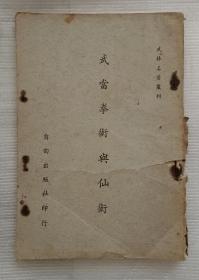 武林名著叢刊
武當拳術與仙術
出版社印行